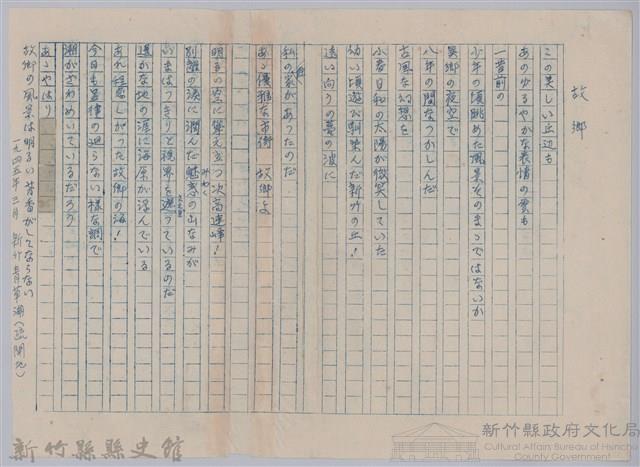 故郷
この美しい丘辺も
あのゆるやかな表情の雲も
一昔前の
少年の頃眺めた風景そのまゝではないか
異郷の夜空で
八年の間なつかしんだ
古風な幻想を
小春日和の太陽が微笑していた
幼い頃遊び馴染んだ新竹の丘!
遠い向うの雲の波に
私の家があったのだ
あゝ優雅な市街 故郷よ
明るの空に聳え立つ次高連峰!
別離の涙に潤んだ魅惑の山なみが
みわく
いまはっきりと視界を遮っているのだ
遥かな地の涯に海原が浮んでいる
あれ程恋しがった故郷の海!
今日も星褸の廻らない様な網で
潮がざわめいているだろう
あゝやはり
故郷の風景は明るい音香がしてならない
一九四五年三月 新竹青草湖(疎開地)
新竹縣縣史館
新竹縣政府文化局
Cultural Affairs Bureau of Hsinchu
County Government